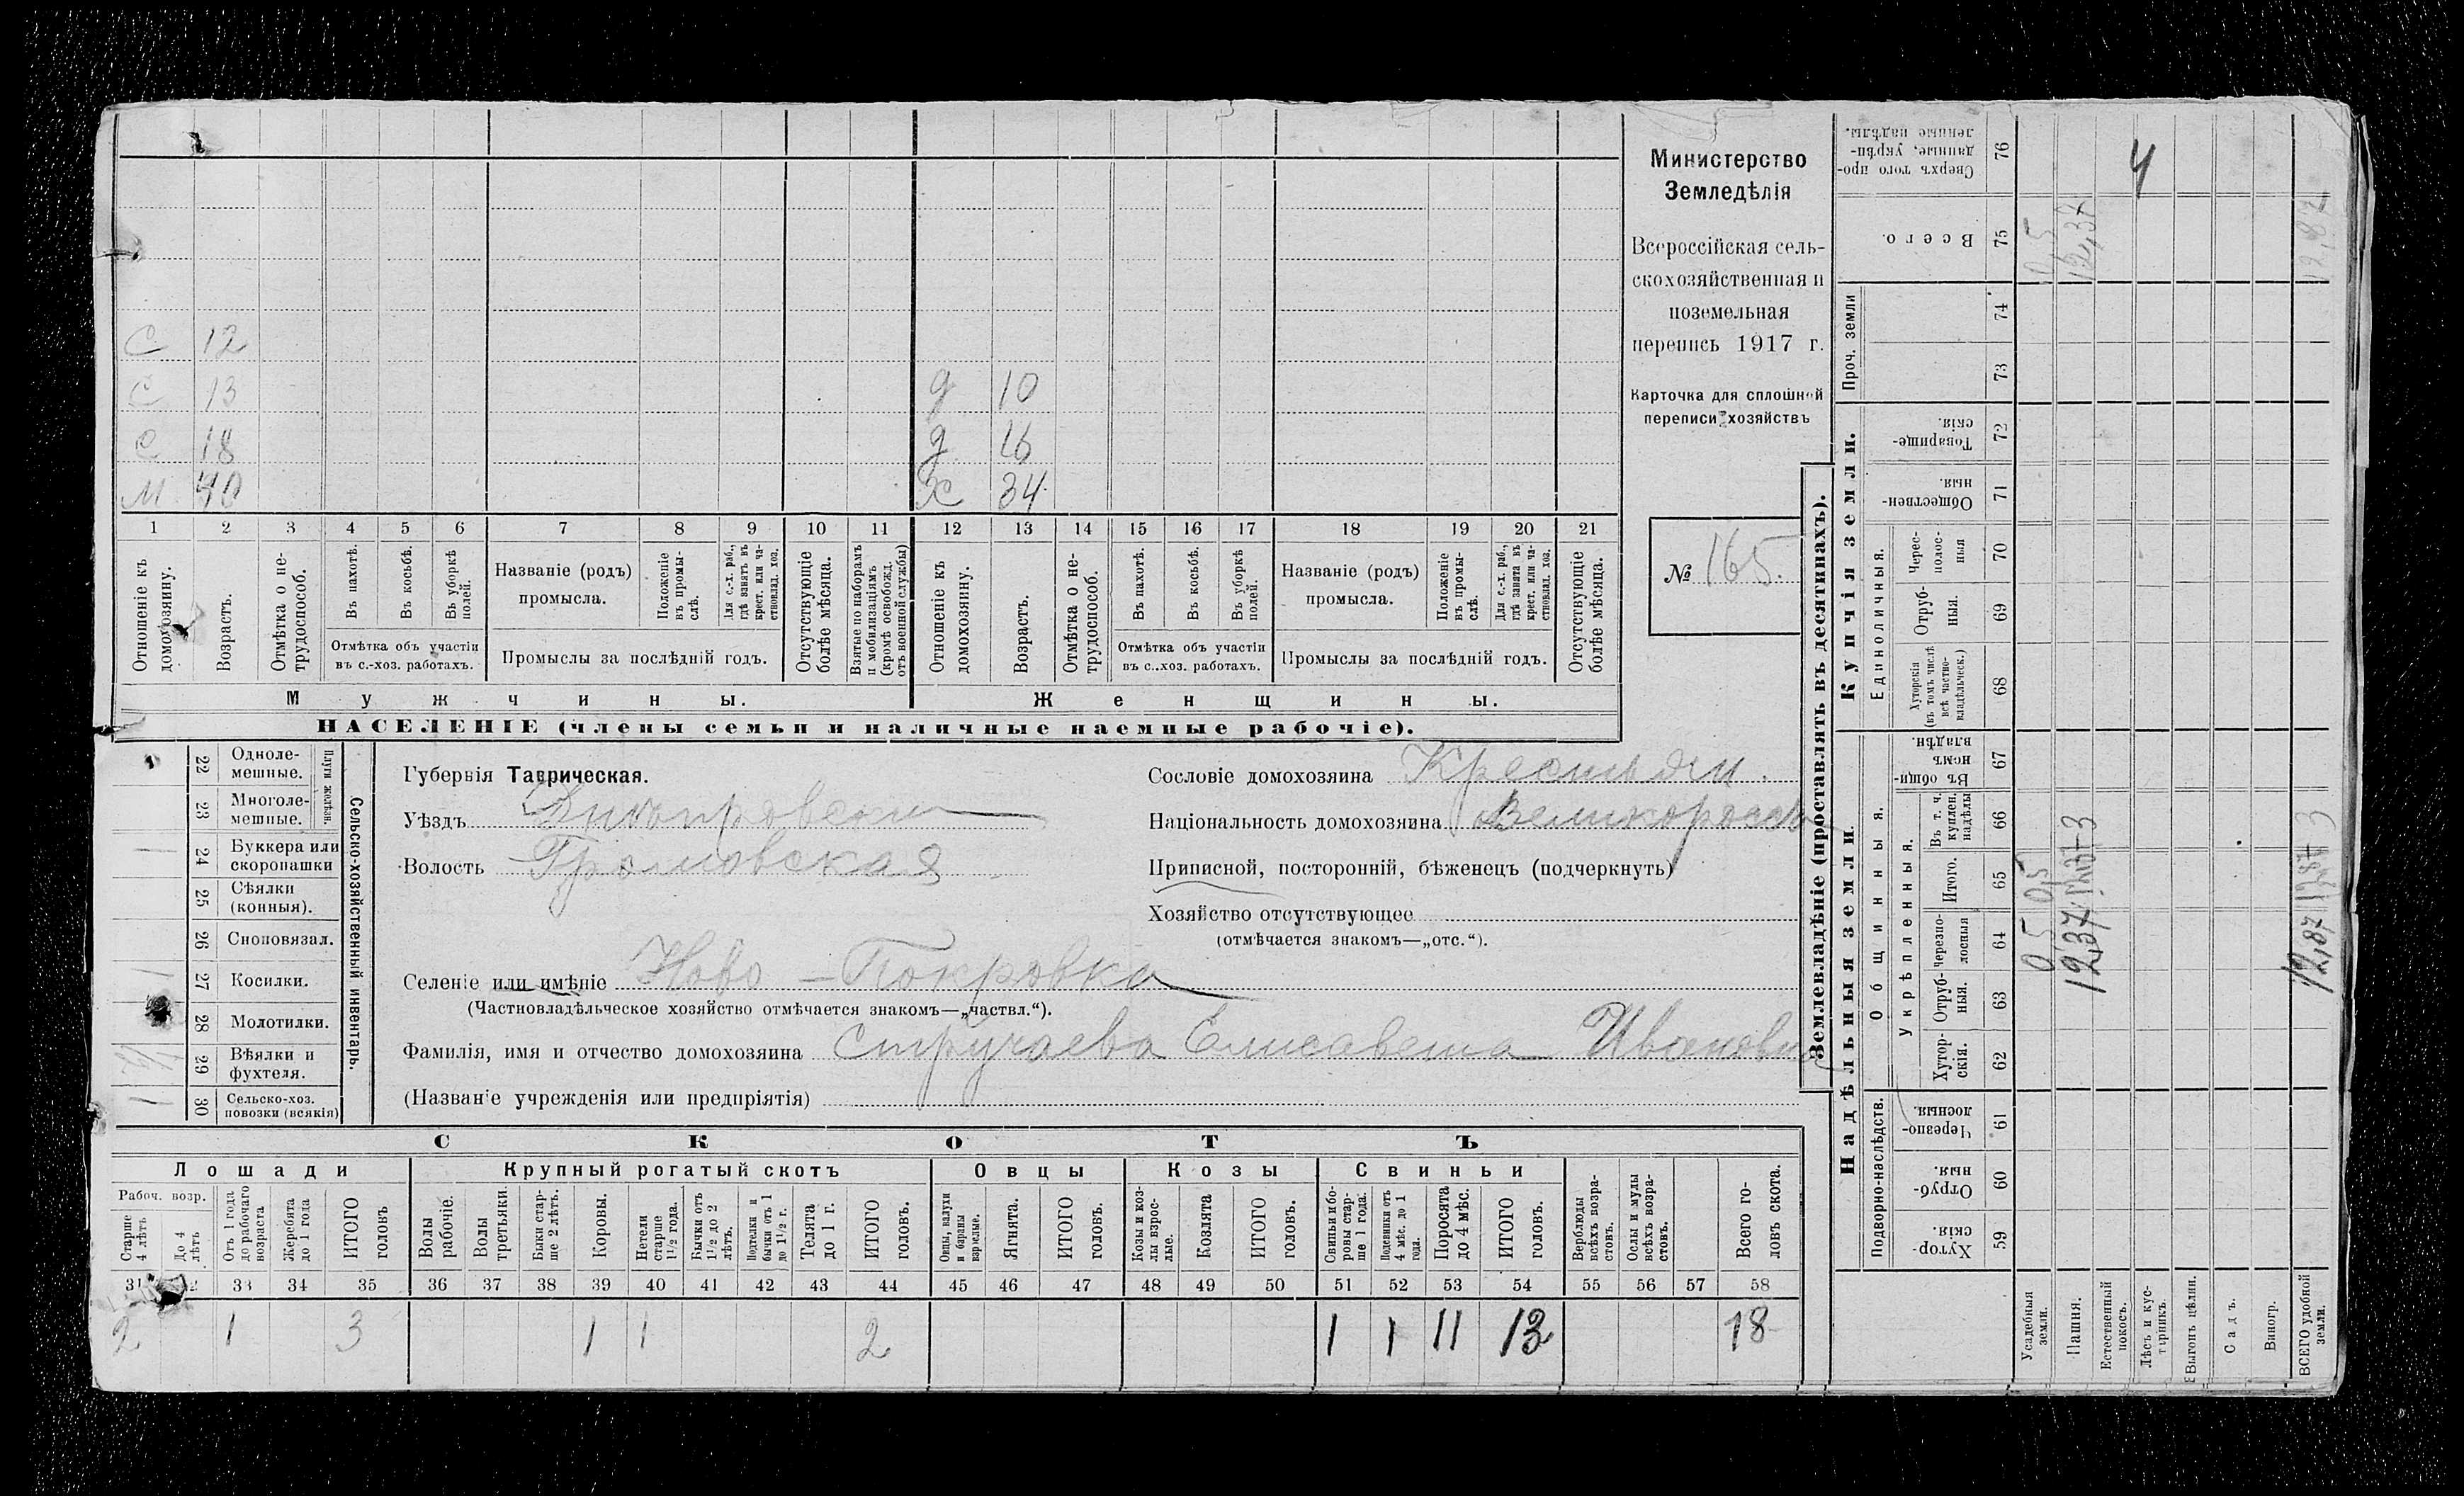 С 12
С 13 д 10
С 18 д 16
М 40 Ж 34
1 2 3 4 5 6 7 8 9 10 11 12 13 14 15 16 17 18 19 20 21
Отношеніе къ домохозяину.
Возрастъ.
Отмѣтка о не-трудоспособ.
Въ пахотѣ.
Въ косьбѣ.
Въ уборкѣ полей.
Отмѣтка объ участіи
въ с.-хоз. работахъ.
Названіе (родъ)
промысла.
Положеніе въ промы-слѣ.
Для с.-х. раб., гдѣ занятъ въ крест. или ча-стновлад. хоз.
Промыслы за послѣдній годъ.
Отсутствующіе болѣе мѣсяца.
Взятые по наборамъ и мобилизаціямъ (кромѣ освобожд. отъ военной службы)
Отношеніе къ домохозяину.
Возрастъ.
Отмѣтка о не-трудоспособ.
Въ пахотѣ.
Въ косьбѣ.
Въ уборкѣ полей.
Отмѣтка объ участіи
въ с..хоз. работахъ.
Названіе (родъ)
промысла.
Положеніе въ промы-слѣ.
Для с.-х. раб., гдѣ занята въ крест. или ча-стновлад. хоз.
Промыслы за послѣдній годъ.
Отсутствующіе болѣе мѣсяца.
Мужчины. Женщины.
НАСЕЛЕНІЕ (члены семьи и наличные наемные рабочіе).
Министерство
Земледѣлія
Всероссійская сель-
скохозяйственная и
поземельная
перепись 1917 г.
Карточка для сплошной
переписи хозяйствъ
№ 165.
22 Одноле-мешные.
23 Многоле-мешные.
Плуги желѣзн.
24 Буккера или скоропашки
25 Сѣялки (конныя).
26 Сноповязал.
27 Косилки.
28 Молотилки.
29 Вѣялки и фухтеля.
30 Сельско-хоз. повозки (всякія)
Сельско-хозяйственный инвентарь.
Губернія Таврическая.
Уѣздъ Днѣпровски
Волость Громовская
Селеніе или имѣніе Ново-Покровка
(Частновладѣльческое хозяйство отмѣчается знакомъ—„частвл.“).
Фамилія, имя и отчество домохозяина Стручаева Елисавета Ивановна
(Названіе учрежденія или предпріятія)
Сословіе домохозяина Крестьян.
Національность домохозяина Великороссъ
Приписной, посторонній, бѣженецъ (подчеркнуть)
Хозяйство отсутствующее
(отмѣчается знакомъ—„отс.“).
СКОТЪ
Лошади Крупный рогатый скотъ Овцы Козы Свиньи
Рабоч. возр.
Старше 4 лѣтъ
До 4 лѣтъ
Отъ 1 года до рабочаго возраста
Жеребята до 1 года
ИТОГО головъ
Волы рабочіе.
Волы третьяки.
Быки стар-ше 2 лѣтъ.
Коровы.
Нетели старше 1 1/2 года.
Бычки отъ 1 1/2 до 2 лѣтъ.
Подтелки и бычки отъ 1 до 1 1/2 г.
Телята до 1 г.
ИТОГО головъ.
Овцы, валухи и бараны взрослые.
Ягнята.
ИТОГО головъ.
Козы и коз-лы взрос-лые.
Козлята
ИТОГО головъ.
Свиньи и бо-ровы стар-ше 1 года.
Подсвинки отъ 4 мѣс. до 1 года.
Поросята до 4 мѣс.
ИТОГО головъ.
Верблюды всѣхъ возра-стовъ.
Ослы и мулы всѣхъ возра-стовъ.
Всего го-ловъ скота.
31 33 34 35 36 37 38 39 40 41 42 43 44 45 46 47 48 49 50 51 52 53 54 55 56 57 58
2 1 3 1 1 2 1 1 11 13 18
Землевладѣніе (проставлять въ десятинахъ).
Надѣльныя земли. Купчія земли. Проч. земли
Подворно-наслѣдств.
Общинныя.
Укрѣпленныя.
Единоличныя.
Хутор-скія. 59
Отруб-ныя. 60
Черезпо-лосныя. 61
Хутор-скія. 62
Отруб-ныя. 63
Черезпо-лосныя 64
Итого. 65
Въ т. ч. куплен. надѣлы 66
Въ общин-номъ владѣн. 67
Хуторскія (въ томъ числѣ всѣ частно-владѣльческ.) 68
Отруб-ныя. 69
Черес-полос-ныя 70
Обществен-ныя. 71
Товарище-скія. 72
73
74
Всего. 75
Сверхъ того про-данные, укрѣп-ленные надѣлы. 76
Усадебныя земли. 0,5 0,5 0,5
Пашня. 12,37 12,37 3 12,37
Естественный покосъ.
Лѣсъ и кус-тарникъ. 4
Выгонъ цѣлин.
Садъ.
Виногр.
ВСЕГО удобной земли. 12,87 12,87 3 12,87